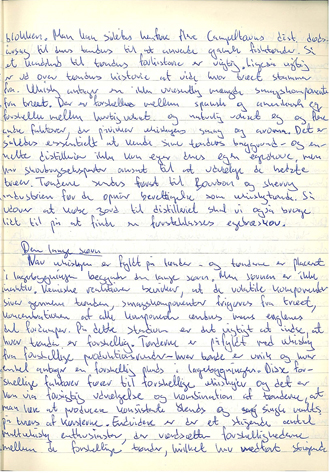 blokken. Man kan således henføre flere Campeltowns dist. døds-
årsag til deres tendens til at anvende gamle fisketønder. Så
et kendskab til tøndens forhistorie er vigtig. Ligeså vigtig
er ud over tøndens historie at vide hvor træet stammer
fra. Whisky antager en ikke uvæsentlig mængde smagskomponenter
fra træet. Der er forskelle mellem spansk og amerikansk eg
forskelle mellem hurtig væxt og naturlig væxt eg og flere
andre faktorer, der påvirker whiskyens smag og aroma. Det er
således essentielt at kende sine tønders baggrund - og en-
kelte distillerier ikke kun ejer deres egen, men
har skovbrugseksperter ansat til at udvælge de bedste
træer. Tønderne sendes først til Bourbon og sherry
industrien før de opnår berettigelse som whiskytønde. Så
udover at køre jord til distilleriet skal vi også bruge
lidt tid på at finde en førsteklasses egetræsskov.
Den lange søvn
Når whiskyen er fyldt på tønder - og tønderne er placeret
i lagerbygningen begynder den lange søvn. Men søvnen er ikke
inaktiv. Kemiske reaktioner bevirker, at de volatile komponenter
siver gennem tønden, smagskomponenter frigøres fra træet,
koncentrationen af alle komponenter ændres mens englenes
del fordamper. På dette stadium er det vigtigt at indse, at
hver tønde er forskellig. Tønderne er påfyldt med whisky
fra forskellige produktionsrunder - hver tønde er unik og hver
enkel antager en forskellig plads i lagerbygningen. Disse for-
skellige faktorer fører til forskellige whiskyer og det er
kun via forsigtig udvælgelse og kombination af tønderne, at
man kan at producere konsistente blends og single malts
på tværs af årstiderne. Endvidere er der et stigende antal
maltwhisky enthusiaster der værdsætter forskellighederne
mellem de forskellige tønder, hvilket har medført stigende